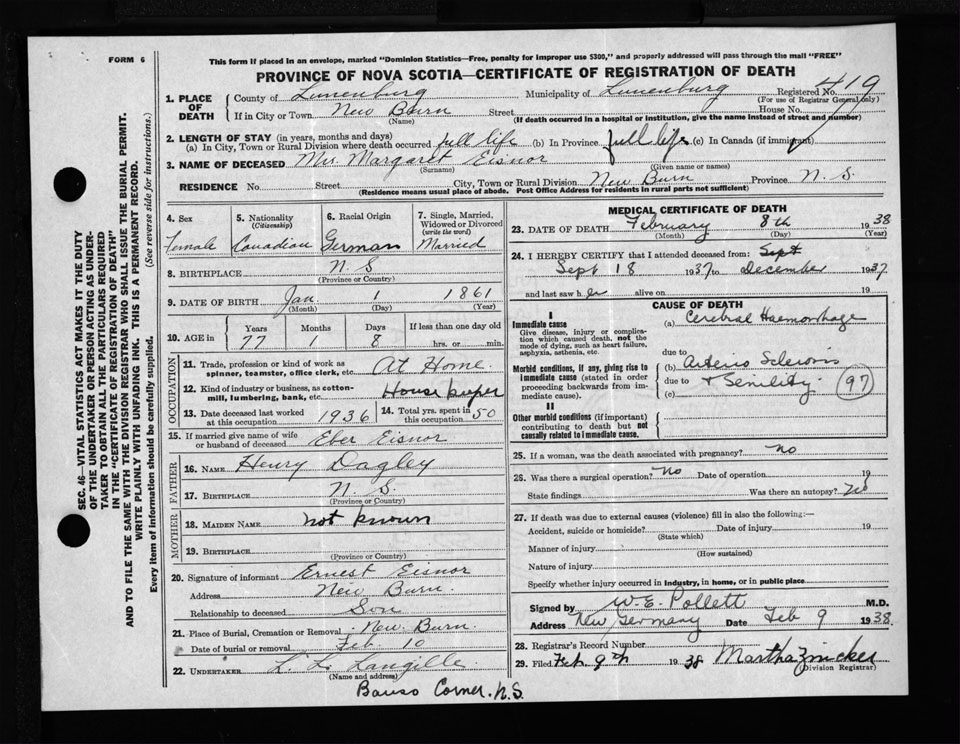 FORM 6
This form if placed in an envelope, marked "Dominion Statistics—Free, penalty for improper use $300," and properly addressed will pass through the mail "FREE"
PROVINCE OF NOVA SCOTIA—CERTIFICATE OF REGISTRATION OF DEATH
1. PLACE OF DEATH County of Lunenburg Municipality of Lunenburg Registered No. 419
(For use of Registrar General only)
If in City or Town New Burn Street House No.
(Name) (If death occurred in a hospital or institution, give the name instead of street and number)
2. LENGTH OF STAY (in years, months and days)
(a) In City, Town or Rural Division where death occurred full life (b) In Province full life (c) In Canada (if immigrant)
3. NAME OF DECEASED Mrs. Margaret Eisnor
(Surname) (Given name or names)
RESIDENCE No. Street City, Town or Rural Division New Burn Province N. S.
(Residence means usual place of abode. Post Office Address for residents in rural parts not sufficient)
4. Sex 5. Nationality (Citizenship) 6. Racial Origin 7. Single, Married, Widowed or Divorced (write the word)
Female Canadian German Married
8. BIRTHPLACE N. S
(Province or Country)
9. DATE OF BIRTH Jan. 1 1861
(Month) (Day) (Year)
10. AGE in Years Months Days If less than one day old
77 1 8 hrs. or min.
OCCUPATION
11. Trade, profession or kind of work as spinner, teamster, office clerk, etc. At Home.
12. Kind of industry or business, as cotton-mill, lumbering, bank, etc. House kuper
13. Date deceased last worked at this occupation 1936 14. Total yrs. spent in this occupation 50
15. If married give name of wife or husband of deceased Eber Eisnor
FATHER
16. NAME Henry Dagley
17. BIRTHPLACE N. S.
(Province or Country)
MOTHER
18. MAIDEN NAME not known
19. BIRTHPLACE
(Province or Country)
20. Signature of informant Ernest Eisnor
Address New Burn.
Relationship to deceased Son
21. Place of Burial, Cremation or Removal New Burn.
Date of burial or removal Feb. 10
22. UNDERTAKER L. L. Langille
(Name and address)
Barss Corner. N.S.
MEDICAL CERTIFICATE OF DEATH
23. DATE OF DEATH February 8th 1938
(Month) (Day) (Year)
24. I HEREBY CERTIFY that I attended deceased from: Sept
Sept 18 1937 to December 1937
and last saw her alive on 19
CAUSE OF DEATH
I
Immediate cause
Give disease, injury or complication which caused death, not the mode of dying, such as heart failure, asphyxia, asthenia, etc.
(a) Cerebral Haemorrhage
due to
Morbid conditions, if any, giving rise to immediate cause (stated in order proceeding backwards from immediate cause).
(b) Arterio Sclerosis
due to & Senility. 97
(c)
II
Other morbid conditions (if important) contributing to death but not causally related to immediate cause.
25. If a woman, was the death associated with pregnancy? no
26. Was there a surgical operation? no Date of operation 19
State findings Was there an autopsy? no
27. If death was due to external causes (violence) fill in also the following:—
Accident, suicide or homicide? Date of injury 19
(State which)
Manner of injury
(How sustained)
Nature of injury
Specify whether injury occurred in industry, in home, or in public place
Signed by W. E. Pollett M.D.
Address New Germany Date Feb 9 1938.
28. Registrar's Record Number
29. Filed Feb 9th 1938 Martha Zwicker
(Division Registrar)
SEC. 46—VITAL STATISTICS ACT MAKES IT THE DUTY
OF THE UNDERTAKER OR PERSON ACTING AS UNDER-
TAKER TO OBTAIN ALL THE PARTICULARS REQUIRED
IN THE "CERTIFICATE OF REGISTRATION OF DEATH"
AND TO FILE THE SAME WITH THE DIVISION REGISTRAR WHO SHALL ISSUE THE BURIAL PERMIT.
WRITE PLAINLY WITH UNFADING INK. THIS IS A PERMANENT RECORD.
Every item of information should be carefully supplied. (See reverse side for instructions.)